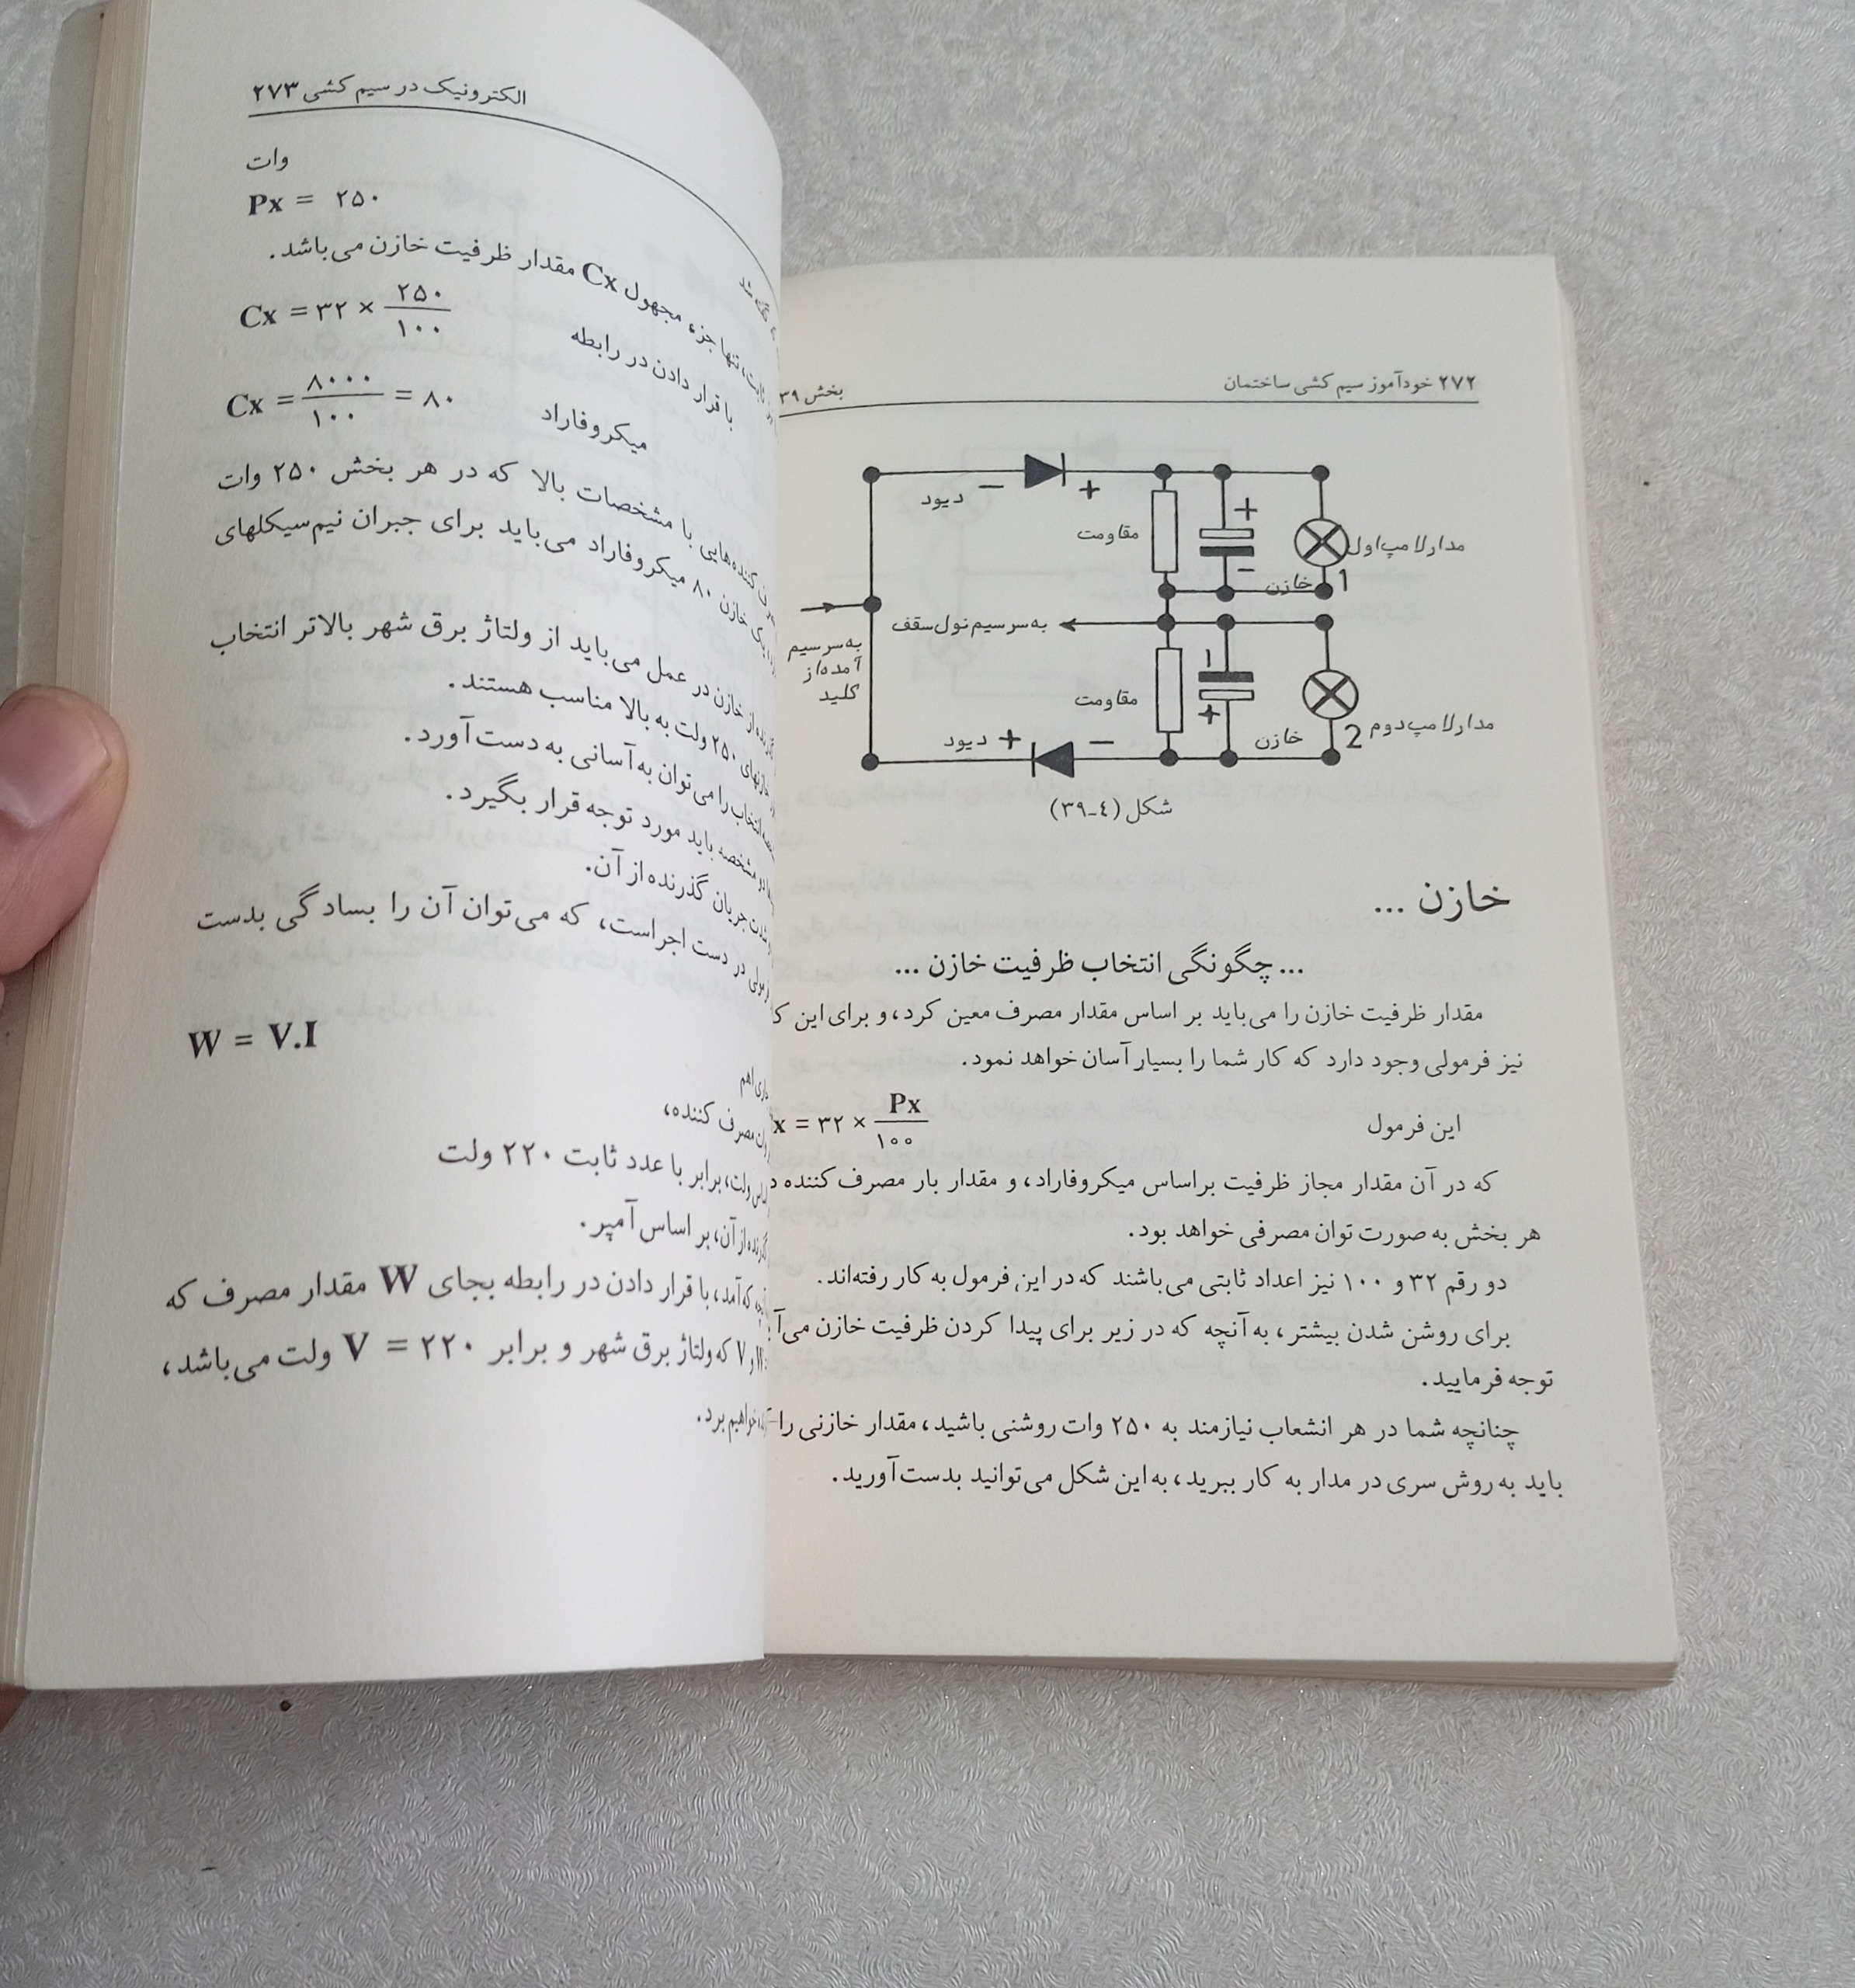 ۲۷۲ خودآموز سیم کشی ساختمان
بخش ۳۹
دیود − +
مقاومت
+
−
خازن
مدار لامپ اول
1
به سر سیم نول سقف
به سر سیم
آمده از
کلید
مقاومت
+
خازن
مدار لامپ دوم
2
دیود + −
شکل (٤-۳۹)
خازن ...
... چگونگی انتخاب ظرفیت خازن ...
مقدار ظرفیت خازن را می‌باید بر اساس مقدار مصرف معین کرد، و برای این
نیز فرمولی وجود دارد که کار شما را بسیار آسان خواهد نمود.
این فرمول x = ۳۲ × Px / ۱۰۰
که در آن مقدار مجاز ظرفیت براساس میکروفاراد، و مقدار بار مصرف کننده
هر بخش به صورت توان مصرفی خواهد بود.
دو رقم ۳۲ و ۱۰۰ نیز اعداد ثابتی می‌باشند که در این فرمول به کار رفته‌اند.
برای روشن شدن بیشتر، به آنچه که در زیر برای پیدا کردن ظرفیت خازن
توجه فرمایید.
چنانچه شما در هر انشعاب نیازمند به ۲۵۰ وات روشنی باشید، مقدار خازنی را
باید به روش سری در مدار به کار ببرید، به این شکل می‌توانید بدست آورید.
الکترونیک در سیم کشی ۲۷۳
وات
Px = ۲۵۰
ثابت، تنها جزء مجهول Cx مقدار ظرفیت خازن می‌باشد.
با قرار دادن در رابطه Cx = ۳۲ × ۲۵۰ / ۱۰۰
میکروفاراد Cx = ۸۰۰۰ / ۱۰۰ = ۸۰
کننده‌هایی با مشخصات بالا که در هر بخش ۲۵۰ وات
یک خازن ۸۰ میکروفاراد می‌باید برای جبران نیم‌سیکلهای
از خازن در عمل می‌باید از ولتاژ برق شهر بالاتر انتخاب
خازنهای ۲۵۰ ولت به بالا مناسب هستند.
انتخاب را می‌توان به آسانی به دست آورد.
دو مشخصه باید مورد توجه قرار بگیرد.
شدت جریان گذرنده از آن.
در دست اجراست، که می‌توان آن را بسادگی بدست
W = V.I
اهم
مصرف کننده،
ولت، برابر با عدد ثابت ۲۲۰ ولت
از آن، بر اساس آمپر.
که آمد، با قرار دادن در رابطه بجای W مقدار مصرف که
W و V که ولتاژ برق شهر و برابر V = ۲۲۰ ولت می‌باشد،
خواهیم برد.